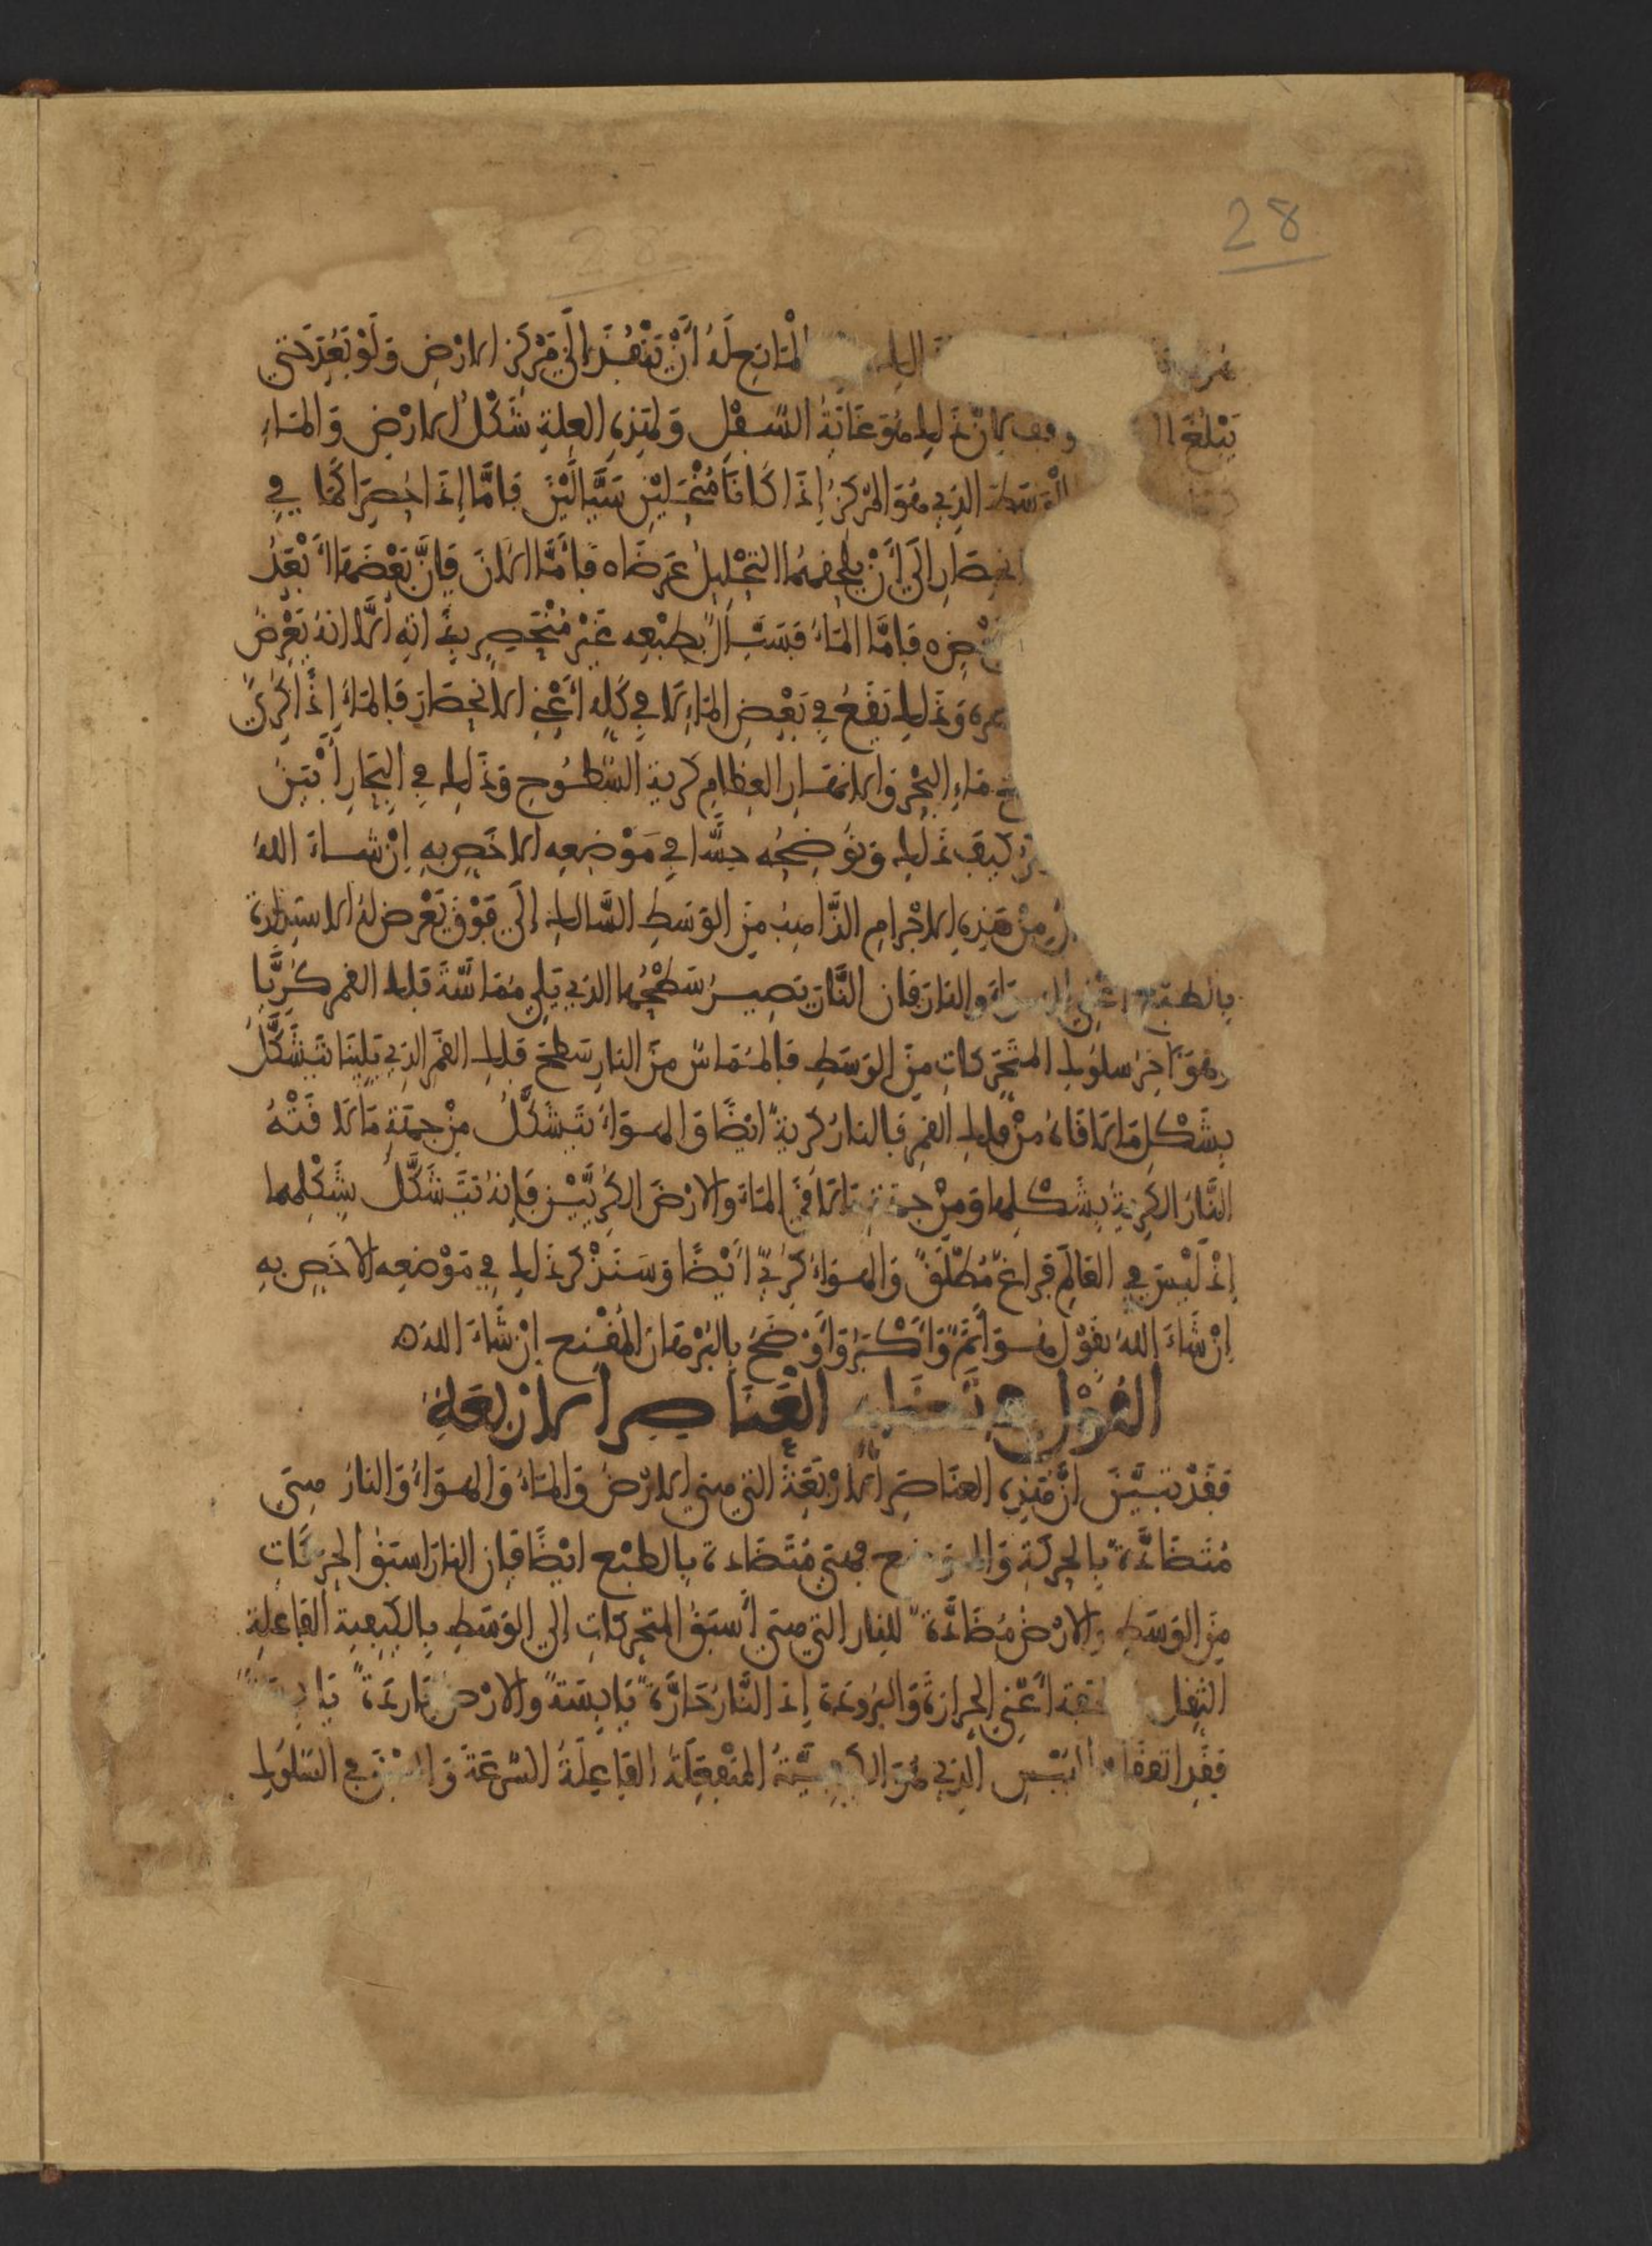 28
المانع له أن تنفذ إلى مركز الارض ولو نفذ حتى
يبلغ وقف لان ذلك هو غاية السفل ولهذه العلة شكل الارض والماء
الوسط الذي هو المركز إذا كانا منحلين سيالين فاما إذا حصرا كما في
انحصار الى أن يلحقهما التحليل عرضا فأما الان فإن بعضها أبعد
فاما الماء فسيال بطبعه غير منحصر بذاته الا انه يعرض
وذلك يقع في بعض الماء لا في كله أعني الانحصار فالماء إذا كري
ماء البحر والانهار العظام كرية السطوح وذلك في البحار أبين
كيف ذلك ونوضحه حسا في موضعه الاخص به إن شاء الله
من هذه الاجرام الذاهبة من الوسط السالك إلى فوق يعرض له الاستدارة
بالطبع اعني الهواء والنار فان النار يصير سطحها الذي يلي مماسة فلك القمر كريا
وهو آخر سلوك المتحركات من الوسط فالمماس من النار سطح فلك القمر الذي يلينا تشكل
بشكل ما لاقاه من فلك القمر فالنار كرية ايضا والهواء تشكل من جهة ما لاقته
النار الكرية بشكلها ومن جهة ما لاقى الماء والارض الكريين فإنه تشكل بشكلهما
إذ ليس في العالم فراغ مطلق والهواء كري أيضا وسنذكر ذلك في موضعه الاخص به
إن شاء الله بقول هو أتم وأكثر وأوضح بالبرهان المقنع إن شاء الله
القول في العناصر الاربعة
فقد تبين أن هذه العناصر الاربعة التي هي الارض والماء والهواء والنار هي
متضادة بالحركة والموضع وهي متضادة بالطبع ايضا فان النار اسبق الحركات
من الوسط والارض مضادة للنار التي هي أسبق المتحركات إلى الوسط بالكيفية الفاعلة
الثقل أعني الحرارة والبرودة إذ النار حارة يابسة والارض باردة يابسة
فقد اتفقا اليبس الذي هو الكيفية المنفعلة الفاعلة السرعة والسبق في السلوك